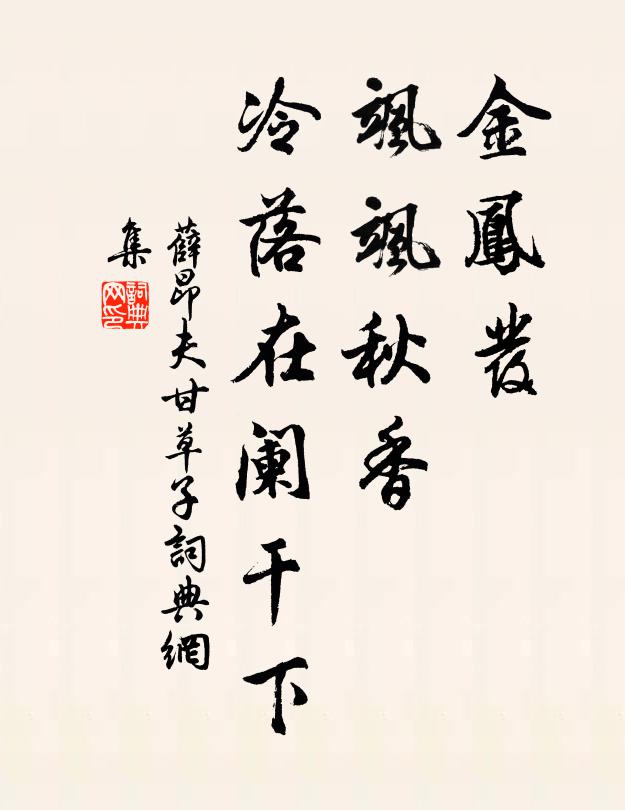 金鳳發
颯颯秋香
冷落在阑干下
薛昂夫甘草子詞典網
集
詞典
网印